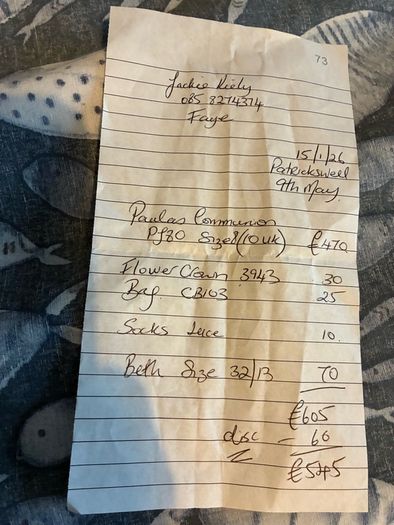 73
Jackie Kiely
085 8274374
Faye
15/1/26
Patrickswell
9th May
Paulas Communion
P580 Size 8 (10 UK) €470
Flower Crown 3943 30
Bag CB103 25
Socks Lace 10
Beth Size 32/13 70
€605
disc - 60
€545